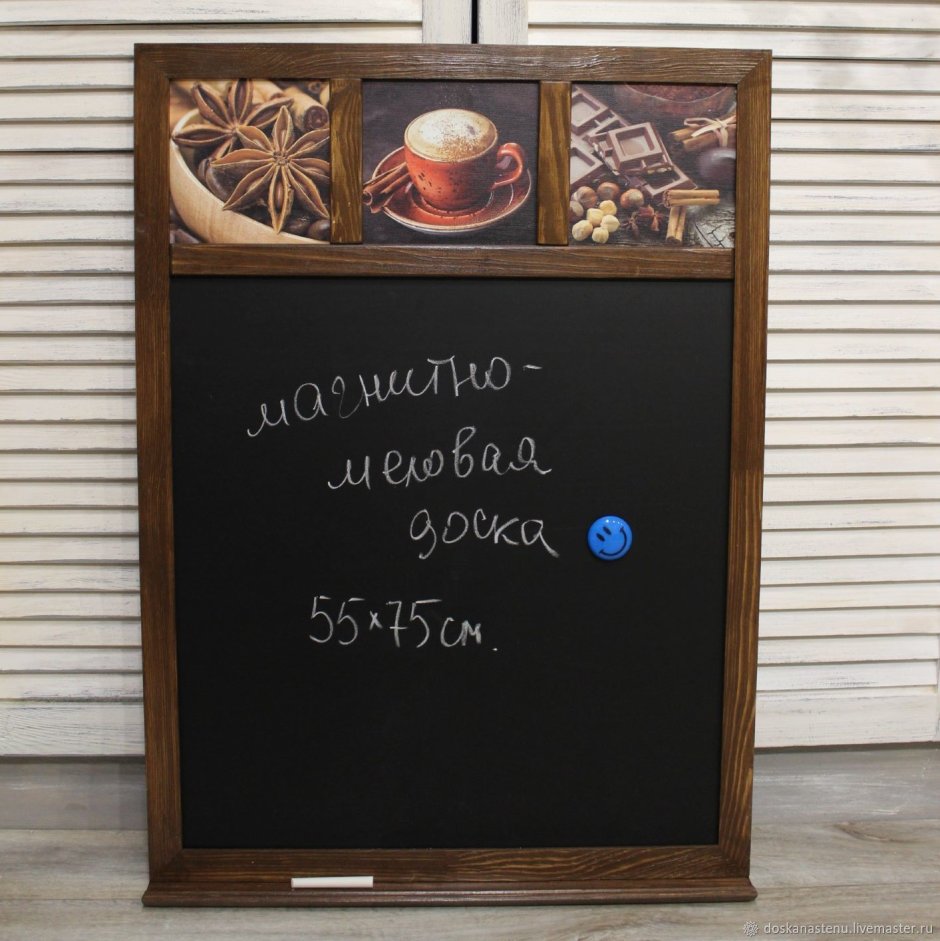 магнитно-
меловая
доска
55×75 см.
doskanastenu.livemaster.ru